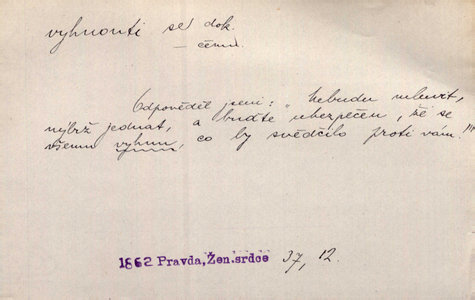 vyhnouti se dok.
— čemu.
Odpověděl jsem: „Nebudu mluvit,
nýbrž jednat, a buďte ubezpečen, že se
všemu vyhnu, co by svědčilo proti vám."
1862 Pravda, Žen. srdce 37, 12.